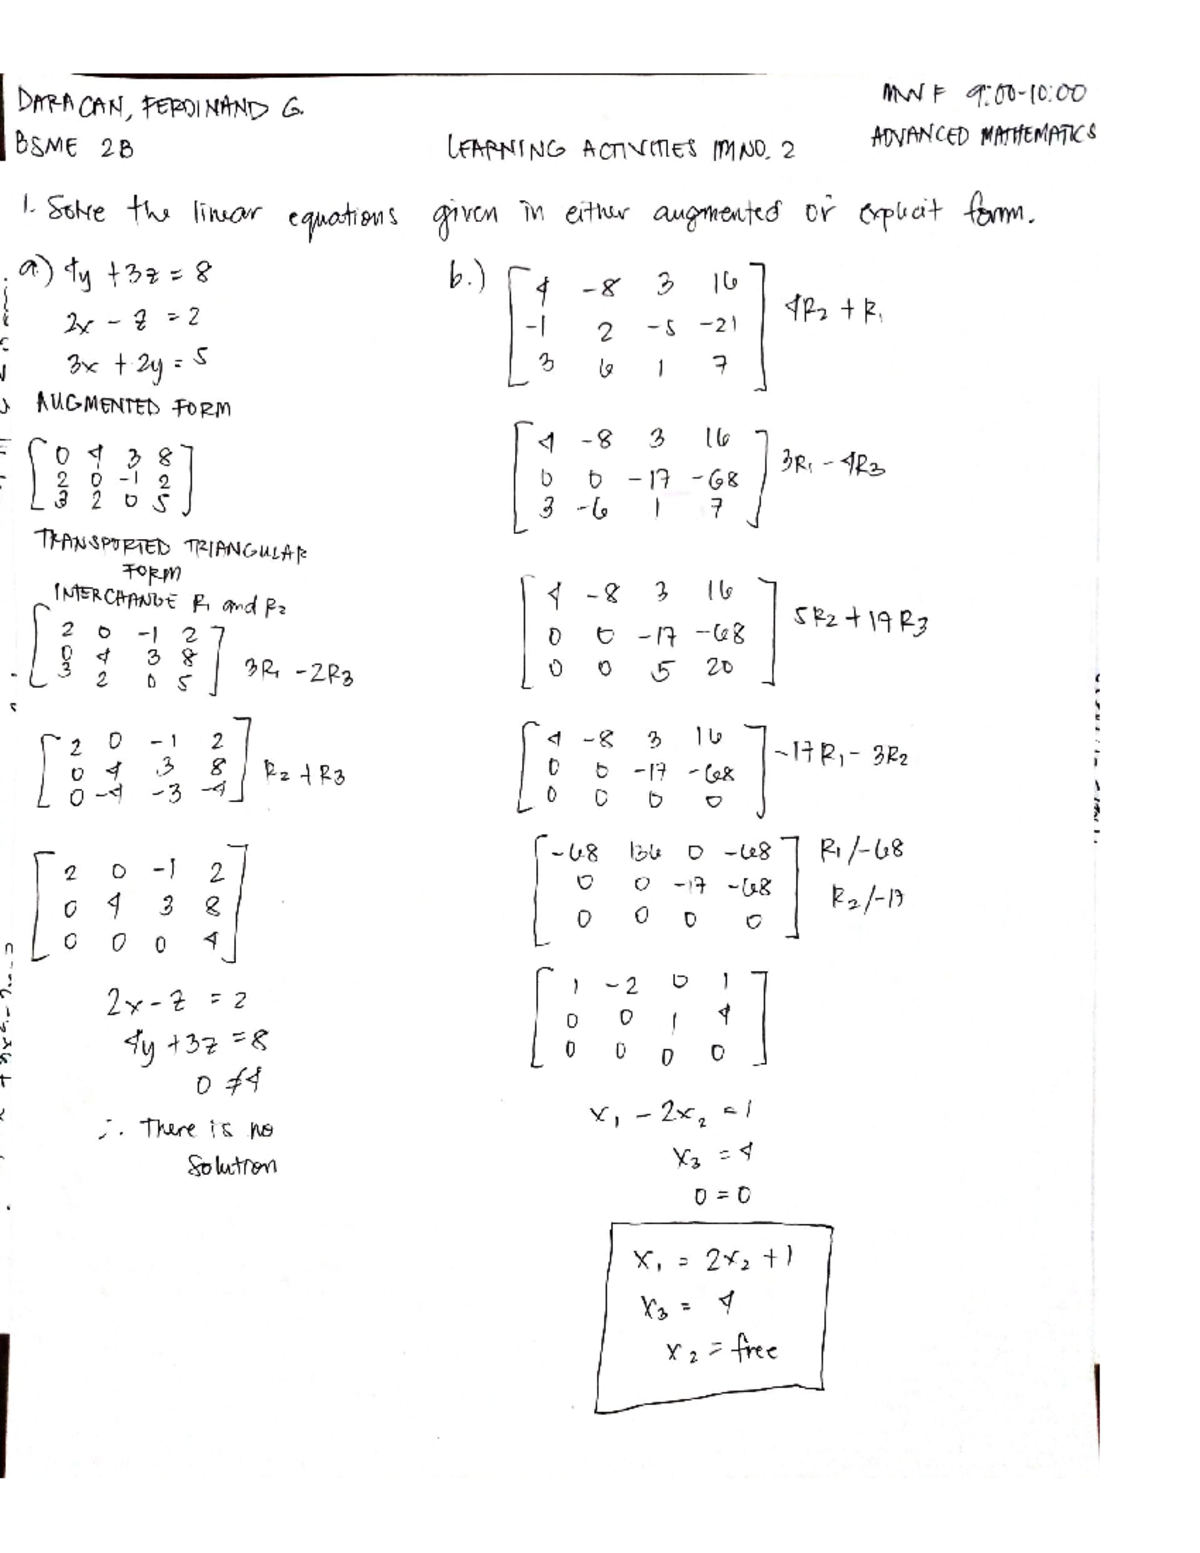 DARACAN, FERDINAND G.
BSME 2B
MWF 9:00-10:00
ADVANCED MATHEMATICS
LEARNING ACTIVITIES M NO. 2
1. Solve the linear equations given in either augmented or explicit form.
a.) 4y + 3z = 8
2x - z = 2
3x + 2y = 5
AUGMENTED FORM
0 4 3 8
2 0 -1 2
3 2 0 5
TRANSPORTED TRIANGULAR
FORM
INTERCHANGE R1 and R2
2 0 -1 2
0 4 3 8
3 2 0 5
3R1 - 2R3
2 0 -1 2
0 4 3 8
0 -4 -3 -4
R2 + R3
2 0 -1 2
0 4 3 8
0 0 0 4
2x - z = 2
4y + 3z = 8
0 ≠ 4
∴ There is no
Solution
b.)
4 -8 3 16
-1 2 -5 -21
3 6 1 7
4R2 + R1
4 -8 3 16
0 0 -17 -68
3 -6 1 7
3R1 - 4R3
4 -8 3 16
0 0 -17 -68
0 0 5 20
5R2 + 17R3
4 -8 3 16
0 0 -17 -68
0 0 0 0
-17R1 - 3R2
-68 136 0 -68
0 0 -17 -68
0 0 0 0
R1/-68
R2/-17
1 -2 0 1
0 0 1 4
0 0 0 0
x1 - 2x2 = 1
x3 = 4
0 = 0
x1 = 2x2 + 1
x3 = 4
x2 = free